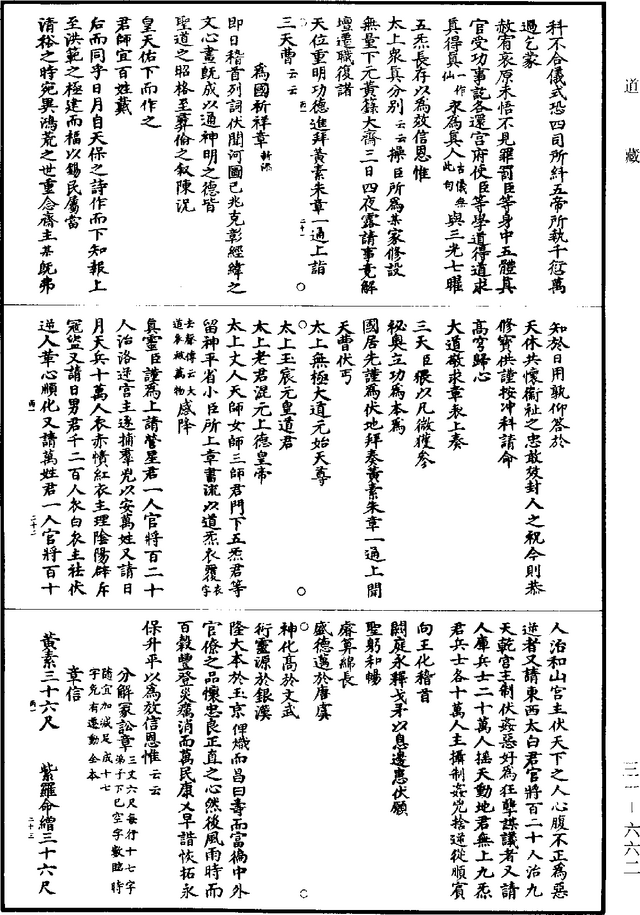 道藏
科不合儀式恐四司所糾五帝所執千愆萬
過乞蒙
赦宥哀原未悟不見罪罰臣等身中五體真
官受功事訖各還宮府使臣等學道得道求
真得真仙一作眾為真人古儀無此句與三光七曜
五炁長存以為效信恩惟
太上眾真分別云云操臣所為某家修設
無量下元黃籙大齋三日四夜露請事竟解
壇遷職復諸
天位重明功德進拜黃素朱章一通上詣
三天曹云云
為國祈祥章新添
即日稽首列詞伏聞河圖已兆克彰經緯之
文心畫既成以通神明之德皆
聖道之昭格至彝倫之敘陳況
皇天佑下而作之
君師宜百姓戴
后而同乎日月自天保之詩作而下知報上
至洪範之極建而福以錫民屬當
清裕之時宛異鴻荒之世重念齋主某既弗
知於日用孰仰答於
天休共懷衛社之忠敢效封人之祝今則恭
修寶供謹按沖科請命
高穹歸心
大道敬求章表上奏
三天臣猥以凡微獲參
秘奧立功為本為
國居先謹為伏地拜奏黃素朱章一通上聞
天曹伏丐
太上無極大道元始天尊
太上玉宸元皇道君
太上老君混元上德皇帝
太上丈人天師女師三師君門下五炁君等
留神平省小臣所上章書流以道炁衣覆衣字
去聲傳云大道衣被萬物感降
真靈臣謹為上請營星君一人官將百二十
人治洛逆宮主逐捕羣兇以安萬姓又請日
月天兵十萬人衣赤幘紅衣主理陰陽辟斥
寇盜又請日男君千二百人衣白衣主社伏
逆人華心順化又請萬姓君一人官將百十
人治和山宮主伏天下之人心腹不正為惡
逆者又請東西太白君官將百二十人治九
天乾宮主制伏姦惡好為狂孽謀議者又請
人庫兵士二十萬人搖天動地君無上九炁
君兵士各十萬人主攝制姦兇捨逆從順賓
向王化稽首
闕庭永釋戈矛以息邊患伏願
聖躬和暢
睿算綿長
盛德邁於唐虞
神化高於文武
衍靈源於銀漢
隆大本於玉京俾熾而昌曰壽而富徧中外
官僚之品懷忠良正直之心然後風雨時而
百穀豐登災癘消而萬民康乂早諧恢拓永
保升平以為效信恩惟云云
分解冢訟章三丈六尺每行十七字弟子下已空字數臨時隨宜加減足成十七字免有遷動全本
章信
黃素三十六尺　紫羅命繒三十六尺
三一－六六二